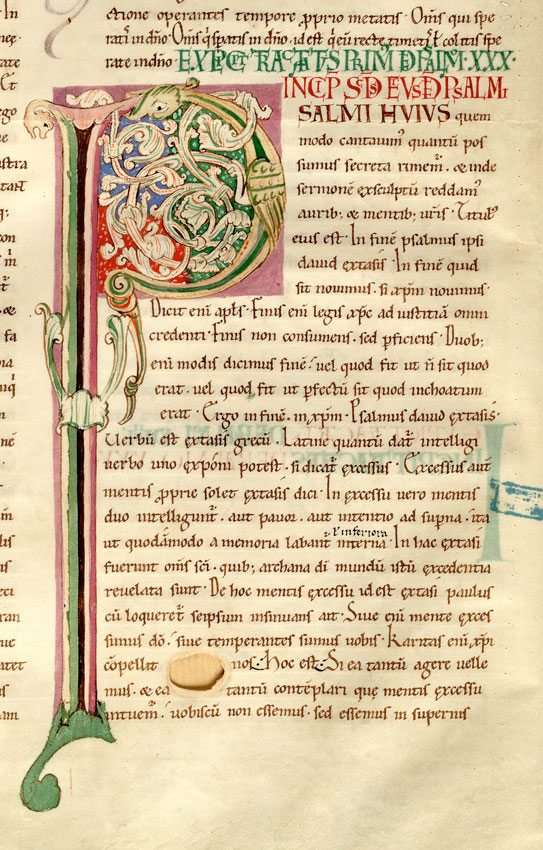 ctione operantes tempore ꝓprio metatis. Om̅s qui spe
rati' in dn̅o. Om̅s q̇ sꝑatis in dn̅o. id est q̇ eu̅ recte timet⁊ colitis spe
rate in dn̅o. EXPLICIT TRACTAT'S PRIM' D̅ PSALM̅ XXX.
INCIP̅ S̅D̅S EI'SD̅ PSALMI
SALMI HVIVS quem
modo cantauim' quantu̅ pos
sumus secreta rimem̅. & inde
sermone̅ exsculptu̅ reddam'
aurib; & mentib; ur̅is. Titul'
eius est. In fine̅ psalmus ipsi
dauid extasis. In fine̅ quid
sit nouimus. si xp̅m nouimus.
Dicit eni̅ apl̅s. Finis eni̅ legis xp̅c ad iustitia̅ omni
credenti. Finis non consumens. sed ꝑficiens. Duob;
eni̅ modis dicimus fine̅. uel quod fit ut n̅ sit quod
erat. uel quod fit ut ꝑfectu̅ sit quod inchoatum
erat. Ergo in fine̅. in xp̅m. Psalmus dauid extasis.
Uerbu̅ est extasis grecu̅. Latine quantu̅ dat̅ intelligi
uerbo uno exponi potest. si dicat̅ excessus. Excessus aut̅
mentis ꝓprie solet extasis dici. In excessu uero mentis
duo intelligunt̅. aut pauor. aut intentio ad sup̅na. ita
ut quoda̅modo a memoria labant̅ interna. In hac extasi
ł inferiora
fuerunt om̅s sc̅i. quib; archana di̅ mundu̅ istu̅ excedentia
reuelata sunt. De hoc mentis excessu id est extasi paulus
cu̅ loqueret̅ seipsum insinuans ait. Siue eni̅ mente exces
simus do̅. siue temperantes sumus uobis. Karitas eni̅ xp̅i
co̅pellit nos. Hoc est. Si ea tantu̅ agere uelle
mus. & ea tantu̅ conte̅plari que mentis excessu
intuem̅. uobiscu̅ non essemus. sed essemus in supernis